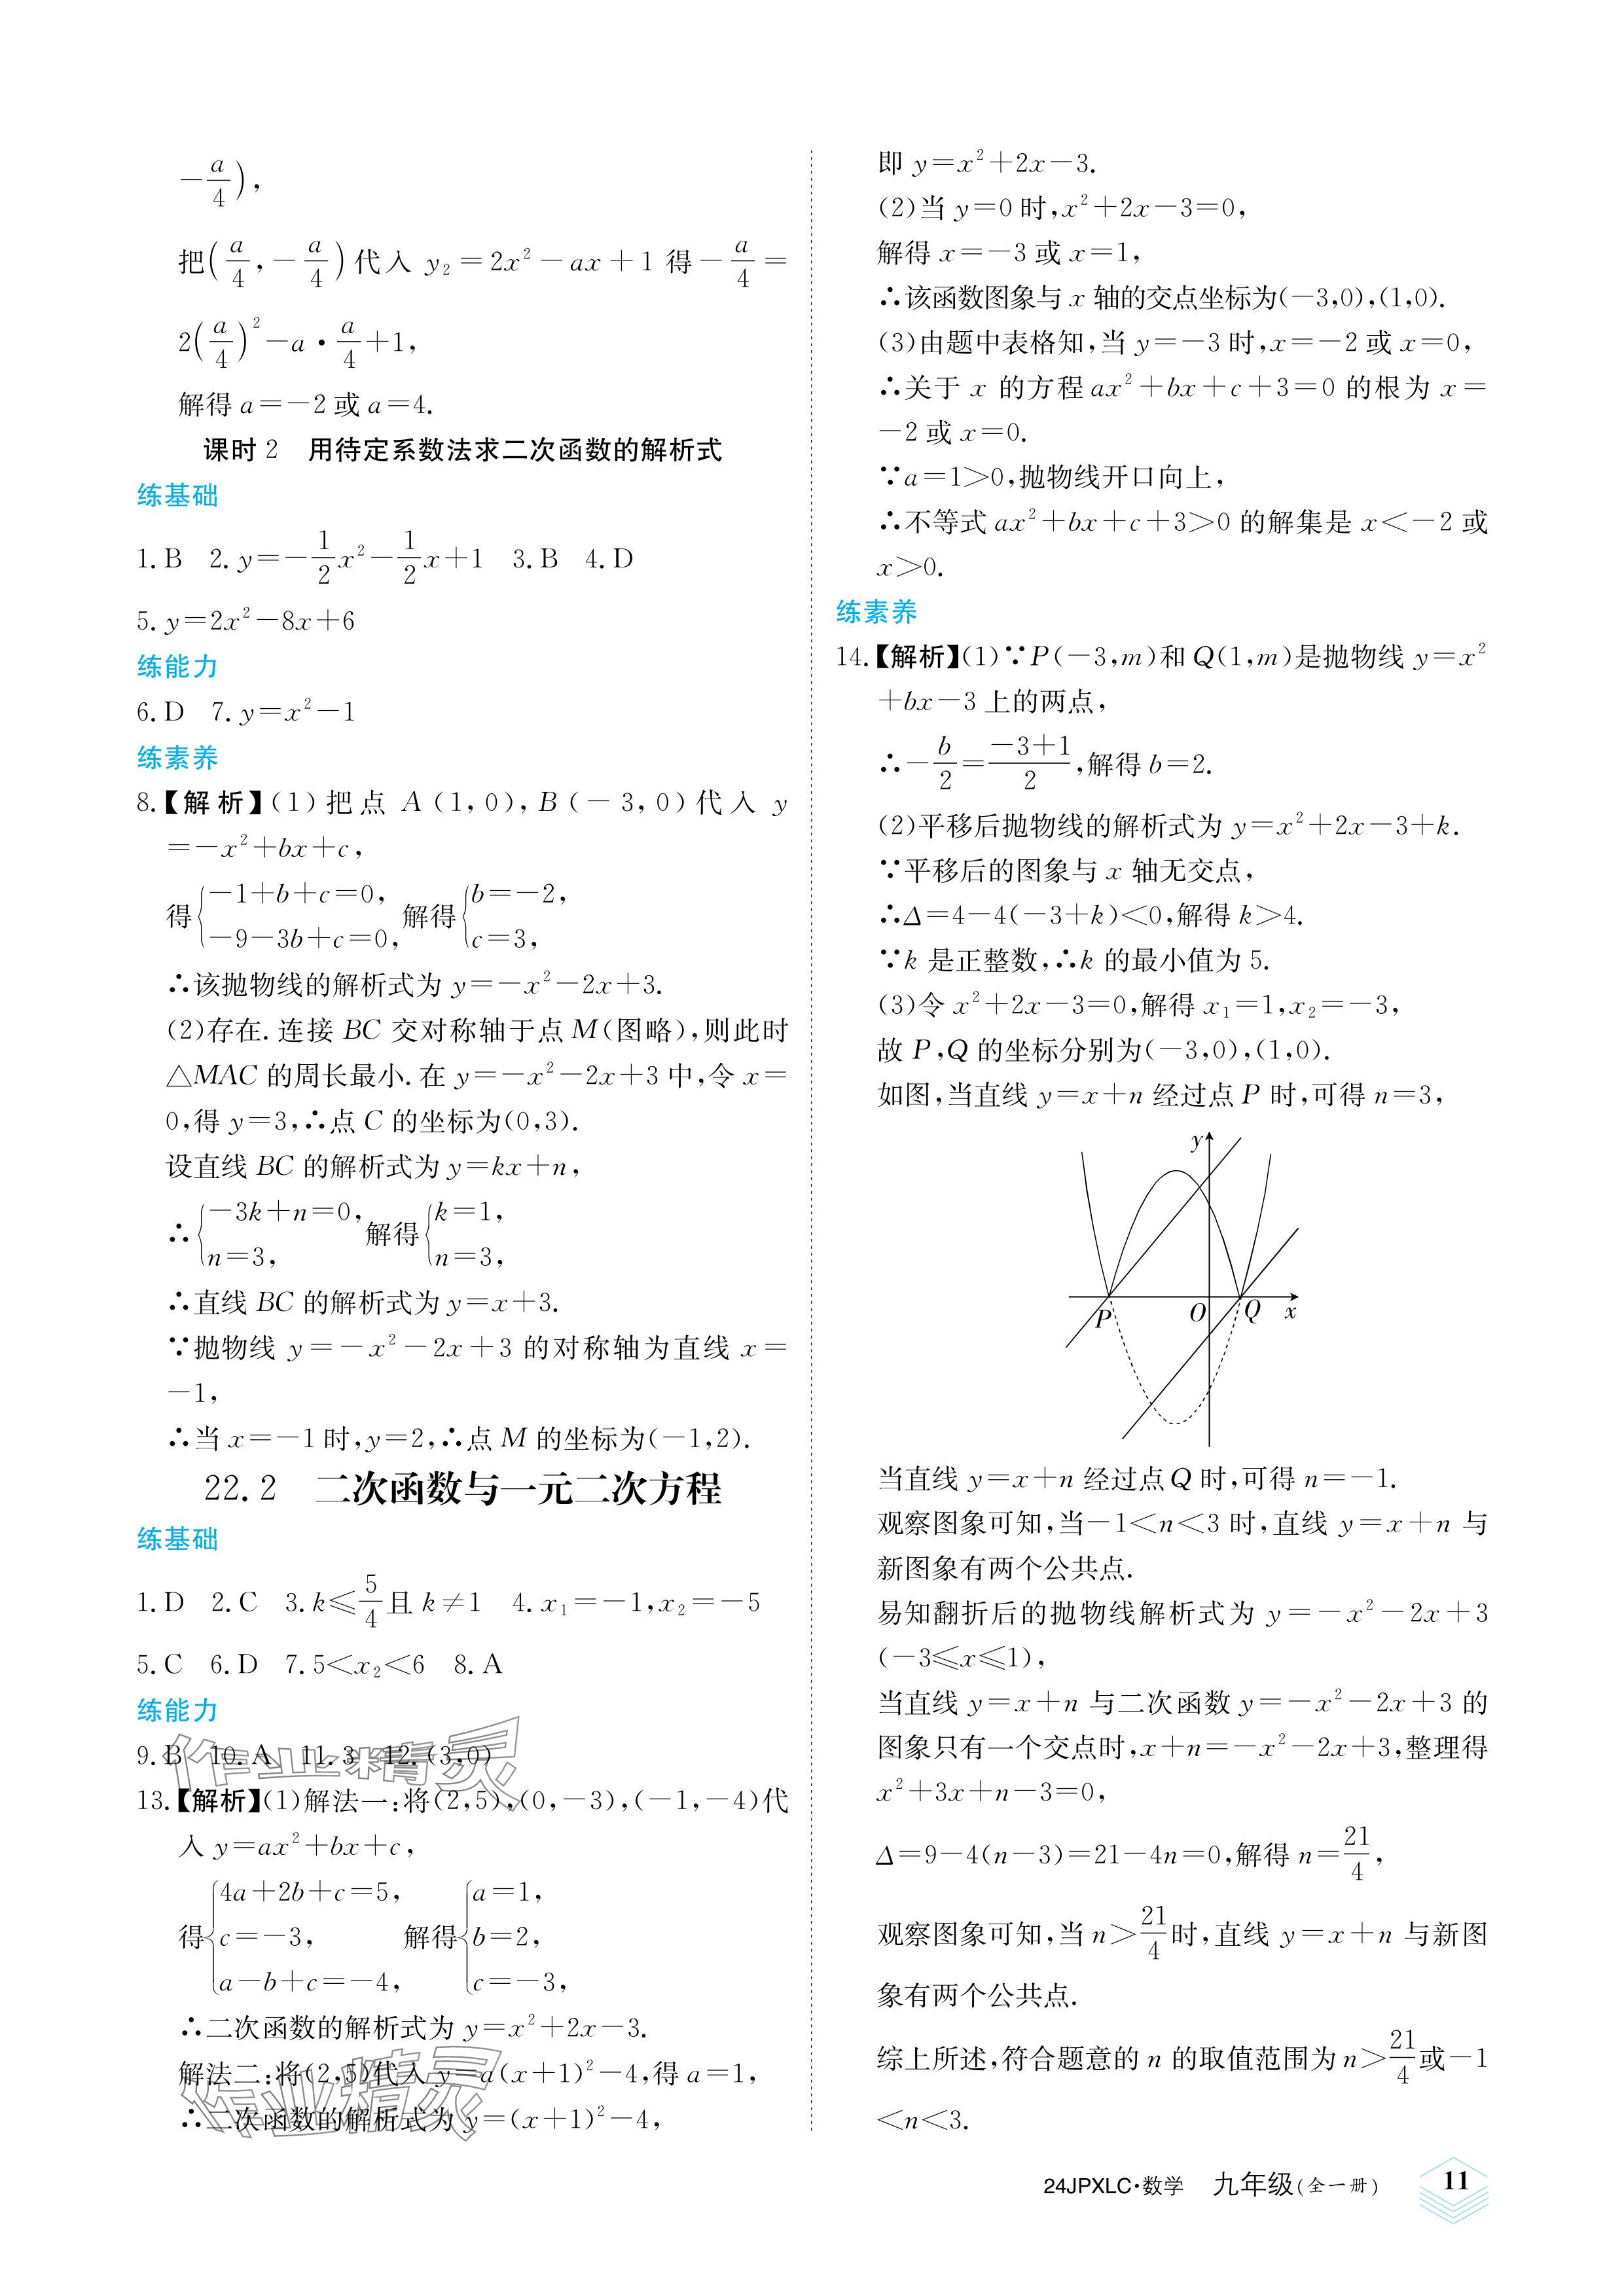 -a/4),
把(a/4,-a/4)代入 y₂=2x²-ax+1 得-a/4=
2(a/4)²-a·a/4+1,
解得 a=-2 或 a=4.
课时 2 用待定系数法求二次函数的解析式
练基础
1. B 2. y=-1/2x²-1/2x+1 3. B 4. D
5. y=2x²-8x+6
练能力
6. D 7. y=x²-1
练素养
8.【解析】(1)把点 A(1,0),B(-3,0)代入 y
=-x²+bx+c,
得{-1+b+c=0, -9-3b+c=0, 解得{b=-2, c=3,
∴该抛物线的解析式为 y=-x²-2x+3.
(2)存在. 连接 BC 交对称轴于点 M(图略),则此时
△MAC 的周长最小. 在 y=-x²-2x+3 中,令 x=
0,得 y=3,∴点 C 的坐标为(0,3).
设直线 BC 的解析式为 y=kx+n,
∴{-3k+n=0, n=3, 解得{k=1, n=3,
∴直线 BC 的解析式为 y=x+3.
∵抛物线 y=-x²-2x+3 的对称轴为直线 x=
-1,
∴当 x=-1 时,y=2,∴点 M 的坐标为(-1,2).
22.2 二次函数与一元二次方程
练基础
1. D 2. C 3. k≤5/4且 k≠1 4. x₁=-1,x₂=-5
5. C 6. D 7. 5<x₂<6 8. A
练能力
9. B 10. A 11. 3 12. (3,0)
13.【解析】(1)解法一:将(2,5),(0,-3),(-1,-4)代
入 y=ax²+bx+c,
得{4a+2b+c=5, c=-3, a-b+c=-4, 解得{a=1, b=2, c=-3,
∴二次函数的解析式为 y=x²+2x-3.
解法二:将(2,5)代入 y=a(x+1)²-4,得 a=1,
∴二次函数的解析式为 y=(x+1)²-4,
作业精灵
作业精灵
即 y=x²+2x-3.
(2)当 y=0 时,x²+2x-3=0,
解得 x=-3 或 x=1,
∴该函数图象与 x 轴的交点坐标为(-3,0),(1,0).
(3)由题中表格知,当 y=-3 时,x=-2 或 x=0,
∴关于 x 的方程 ax²+bx+c+3=0 的根为 x=
-2 或 x=0.
∵a=1>0,抛物线开口向上,
∴不等式 ax²+bx+c+3>0 的解集是 x<-2 或
x>0.
练素养
14.【解析】(1)∵P(-3,m)和 Q(1,m)是抛物线 y=x²
+bx-3 上的两点,
∴-b/2=(-3+1)/2,解得 b=2.
(2)平移后抛物线的解析式为 y=x²+2x-3+k.
∵平移后的图象与 x 轴无交点,
∴Δ=4-4(-3+k)<0,解得 k>4.
∵k 是正整数,∴k 的最小值为 5.
(3)令 x²+2x-3=0,解得 x₁=1,x₂=-3,
故 P,Q 的坐标分别为(-3,0),(1,0).
如图,当直线 y=x+n 经过点 P 时,可得 n=3,
y
P O Q x
当直线 y=x+n 经过点 Q 时,可得 n=-1.
观察图象可知,当-1<n<3 时,直线 y=x+n 与
新图象有两个公共点.
易知翻折后的抛物线解析式为 y=-x²-2x+3
(-3≤x≤1),
当直线 y=x+n 与二次函数 y=-x²-2x+3 的
图象只有一个交点时,x+n=-x²-2x+3,整理得
x²+3x+n-3=0,
Δ=9-4(n-3)=21-4n=0,解得 n=21/4,
观察图象可知,当 n>21/4时,直线 y=x+n 与新图
象有两个公共点.
综上所述,符合题意的 n 的取值范围为 n>21/4或-1
<n<3.
24JPXLC·数学 九年级(全一册) 11